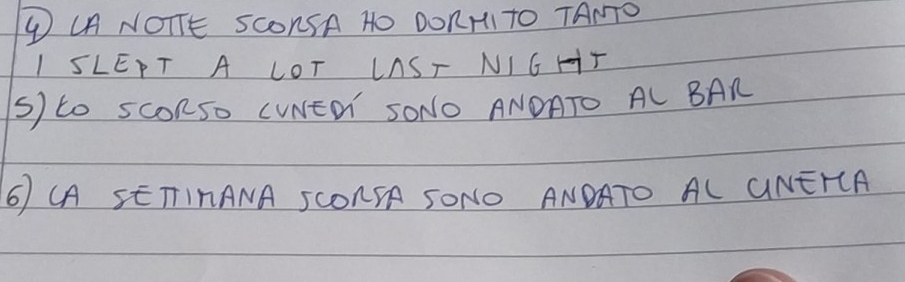 4) LA NOTTE SCORSA HO DORMITO TANTO
I SLEPT A LOT LAST NIGHT
5) LO SCORSO LUNEDÍ SONO ANDATO AL BAR
6) LA SETTIMANA SCORSA SONO ANDATO AL CINEMA